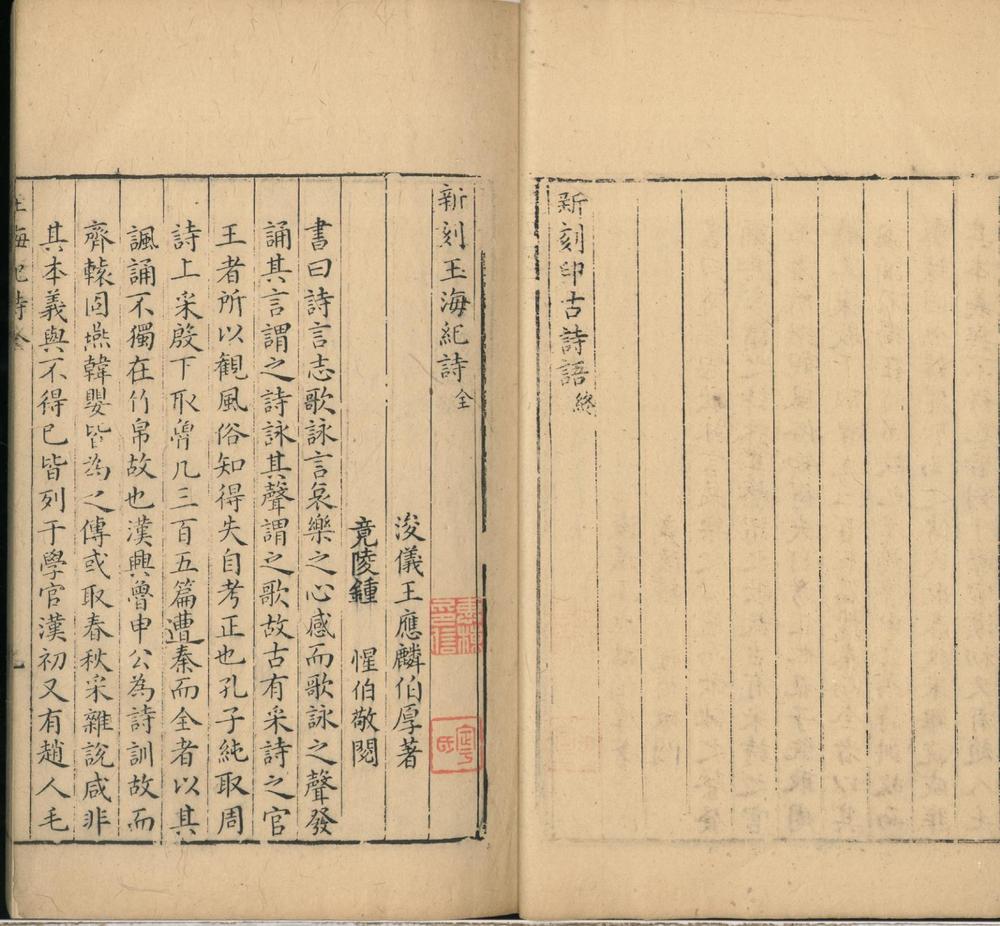 新刻印古詩語終
新刻玉海紀詩全
浚儀王應麟伯厚著
竟陵鍾　惺伯敬閱
書曰詩言志歌詠言哀樂之心感而歌詠之聲發
誦其言謂之詩詠其聲謂之歌故古有采詩之官
王者所以觀風俗知得失自考正也孔子純取周
詩上采殷下取魯凢三百五篇遭秦而全者以其
諷誦不獨在竹帛故也漢興魯申公為詩訓故而
齊轅固燕韓嬰皆為之傳或取春秋采雜說咸非
其本義與不得巳皆列于學官漢初又有趙人毛
惠棟
定宇